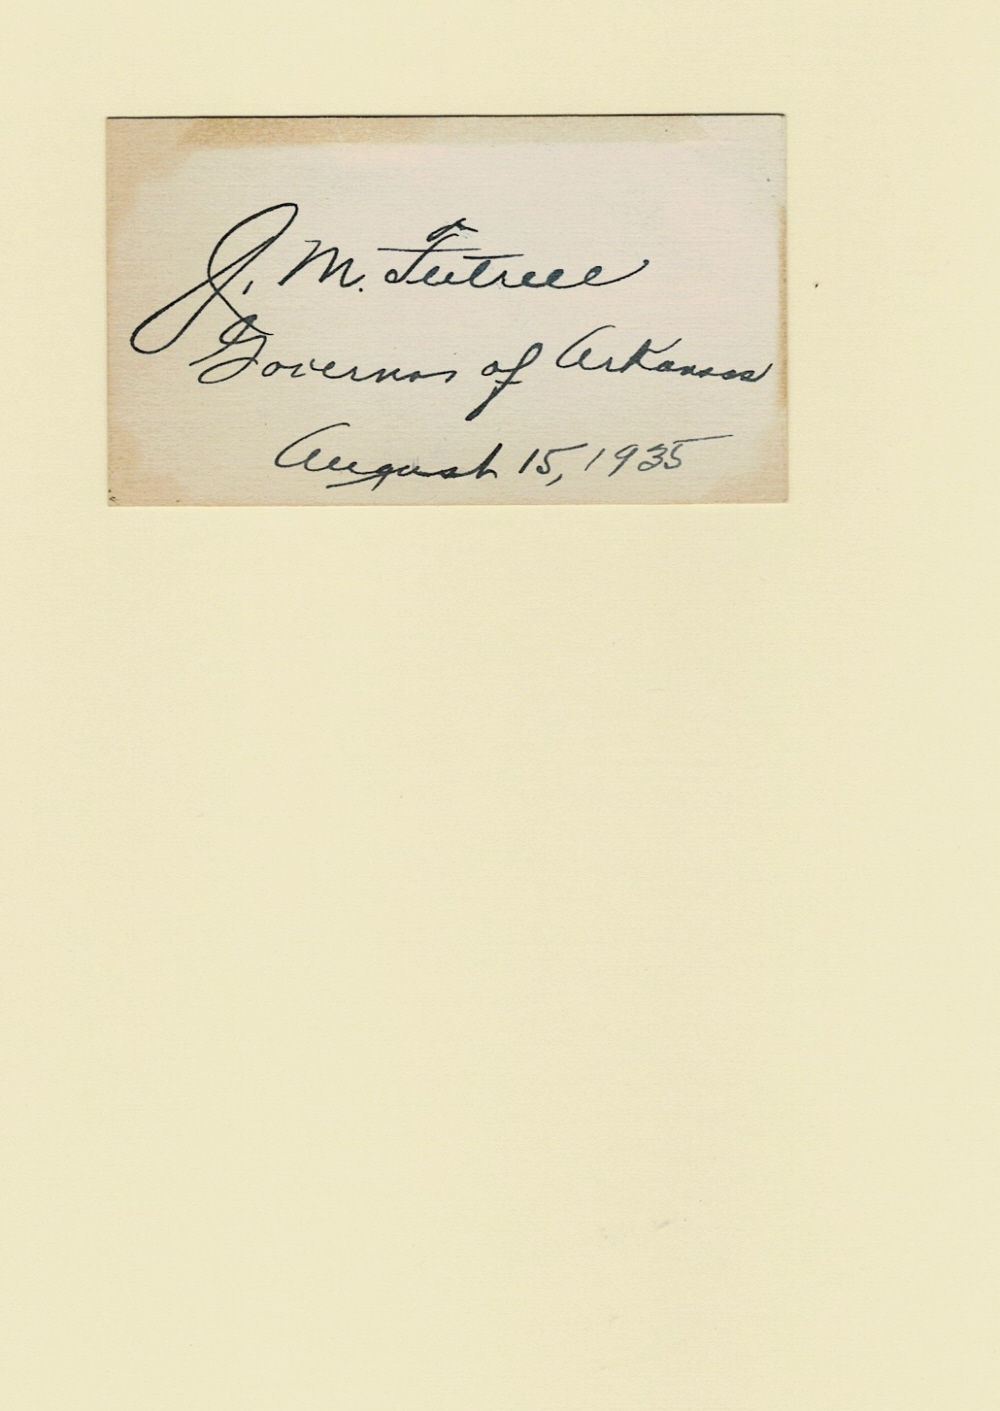 J. M. Futrell
Governor of Arkansas
August 15, 1935